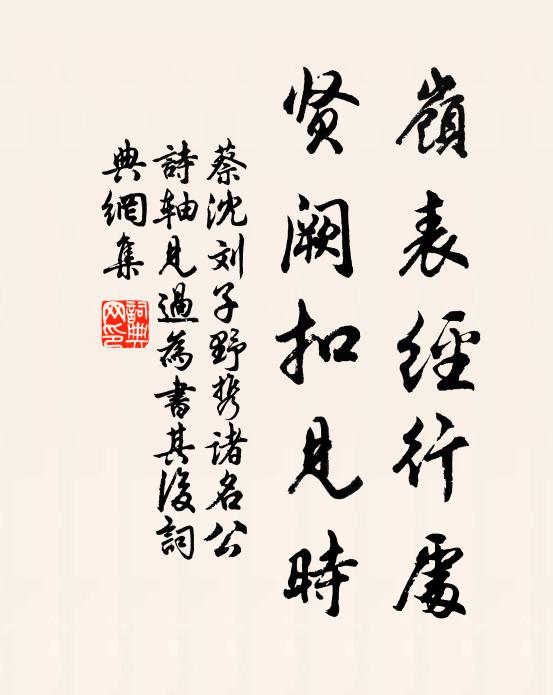 嶺表經行處
贤阙扣見時
蔡沈刘子野携诸名公
詩軸見過為書其後詞
典網集
詞典網印